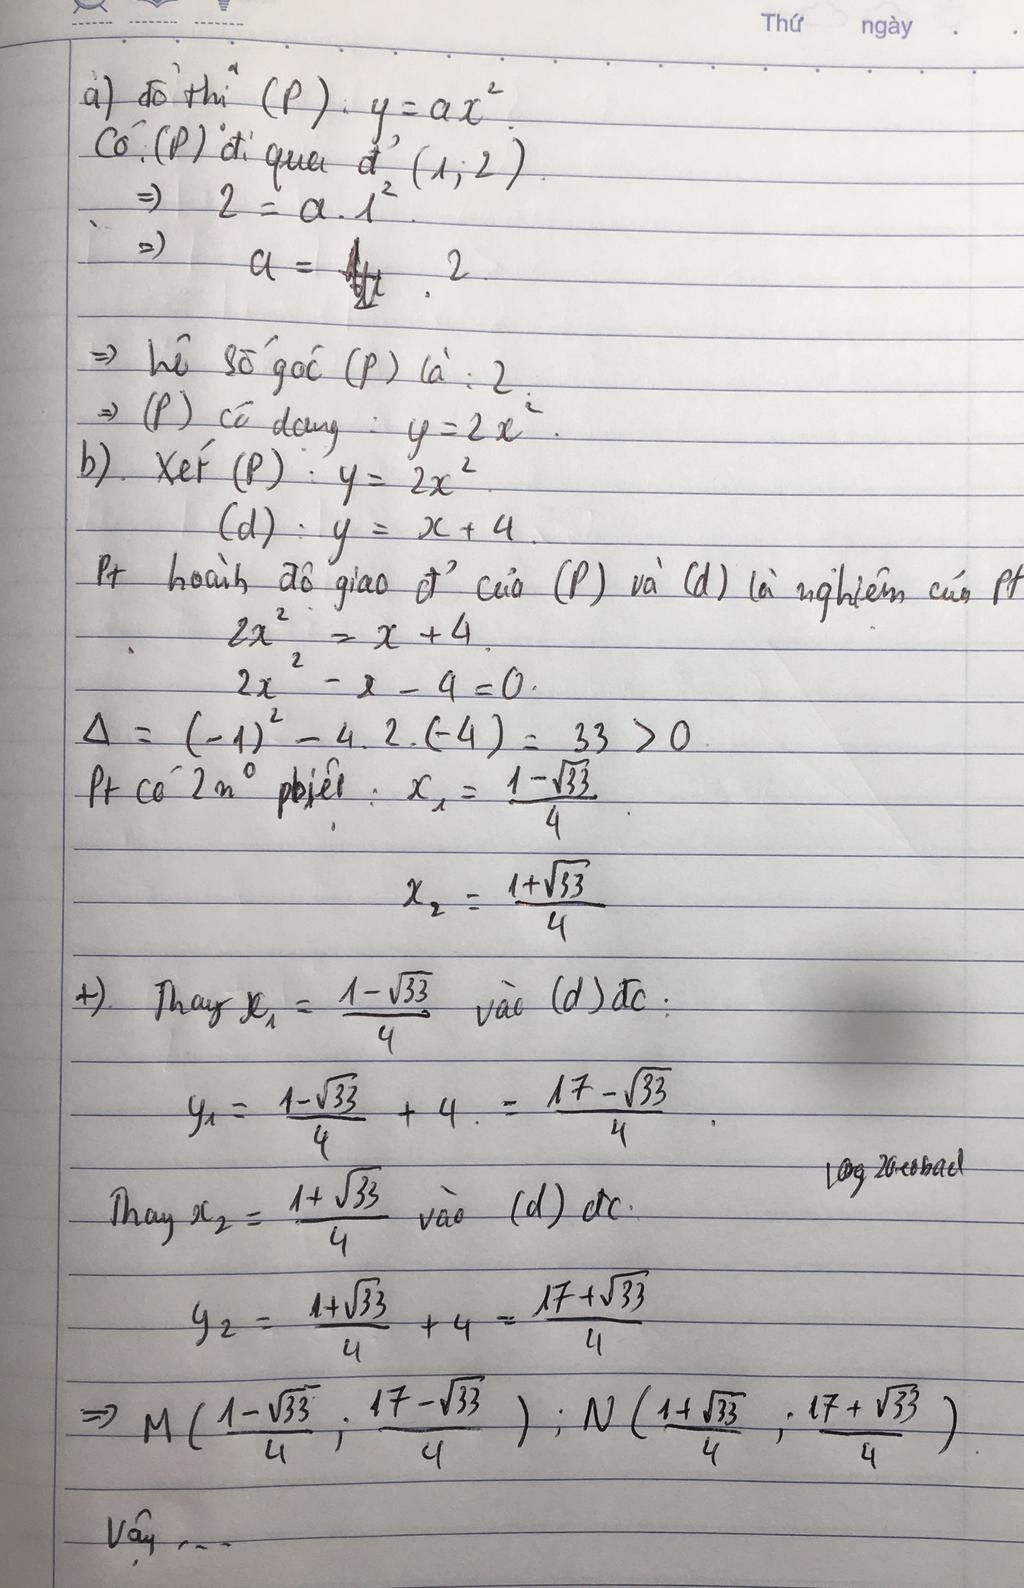 Thứ ngày . .
a) đồ thị (P): y = ax²
Có: (P) đi qua đ' (1; 2).
=> 2 = a.1².
=> a = 2.
=> hệ số góc (P) là: 2.
=> (P) có dạng: y = 2x².
b). Xét (P): y = 2x².
(d): y = x + 4.
Pt hoành độ giao đ' của (P) và (d) là nghiệm của pt
2x² = x + 4.
2x² - x - 4 = 0.
Δ = (-1)² - 4.2.(-4) = 33 > 0.
Pt có 2 n⁰ pbiệt: x₁ = (1-√33)/4.
x₂ = (1+√33)/4
+). Thay x₁ = (1-√33)/4 vào (d) đc:
y₁ = (1-√33)/4 + 4. = (17-√33)/4.
Thay x₂ = (1+√33)/4 vào (d) đc.
y₂ = (1+√33)/4 + 4 = (17+√33)/4
=> M((1-√33)/4; (17-√33)/4); N((1+√33)/4; (17+√33)/4).
Vậy ....